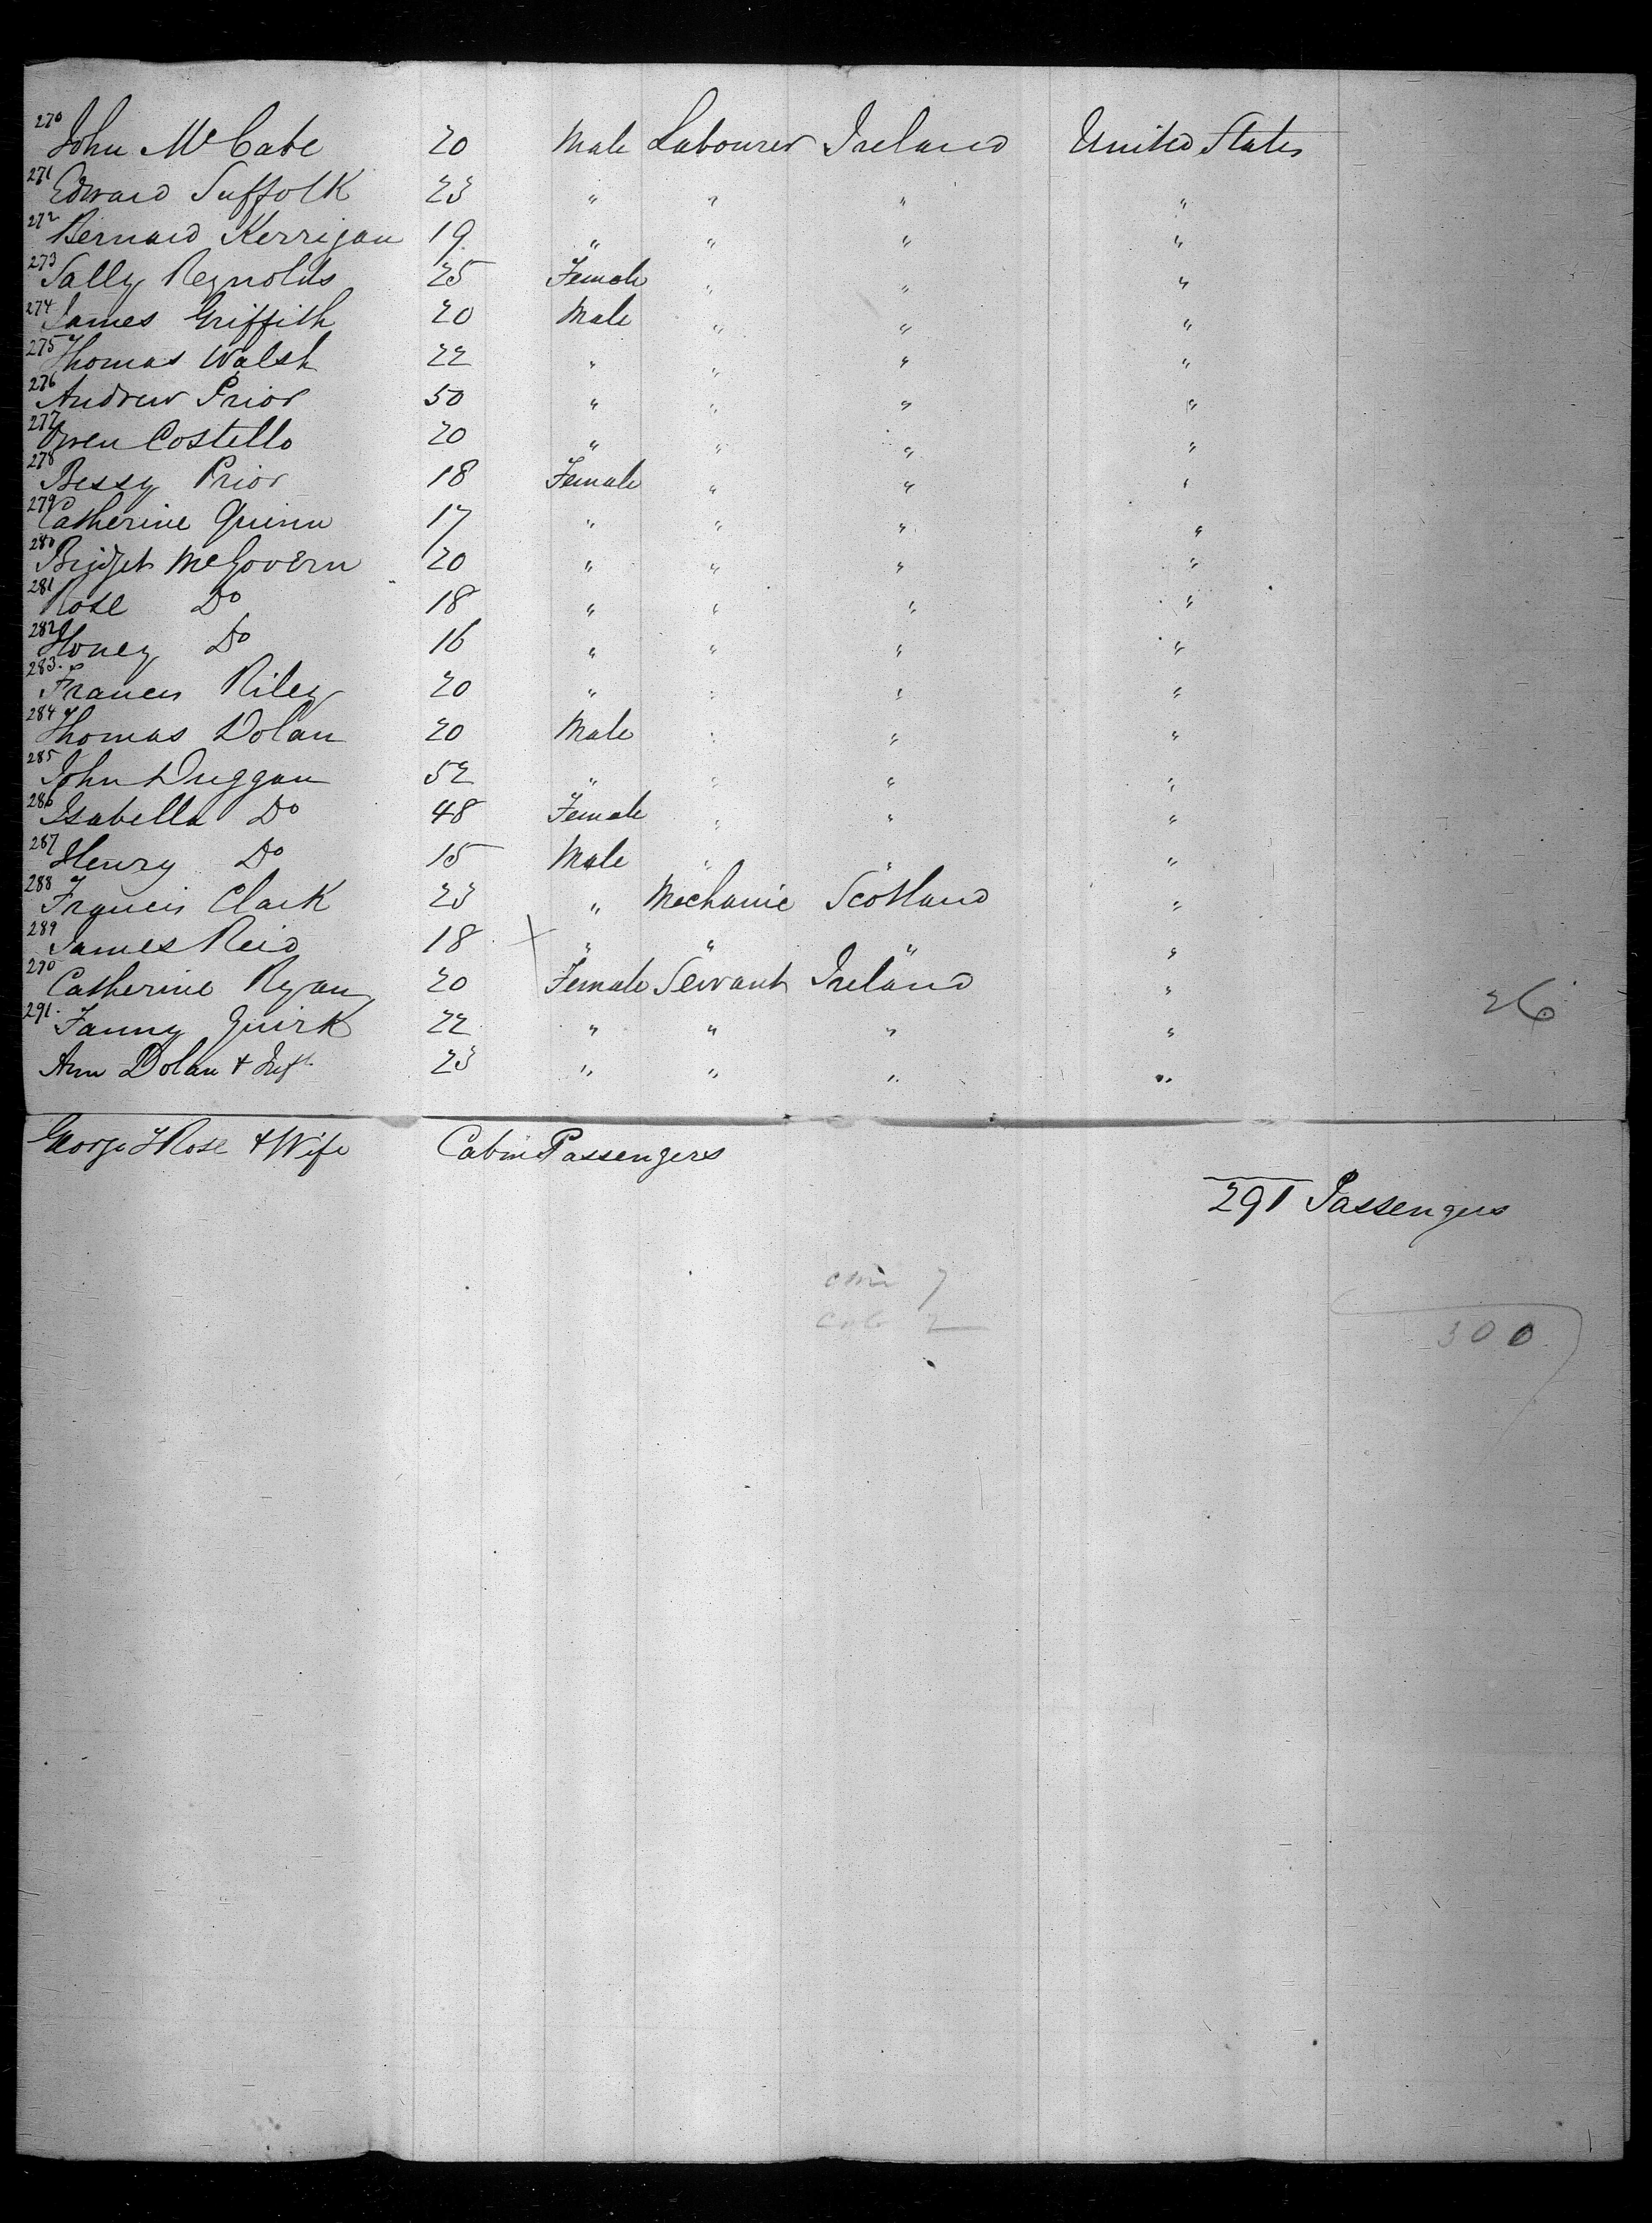 270 John McCabe 20 Male Labourer Ireland United States
271 Edward Suffolk 23 " " " "
272 Bernard Kerrigan 19 " " " "
273 Sally Reynolds 25 Female " " "
274 James Griffith 20 Male " " "
275 Thomas Walsh 22 " " " "
276 Andrew Prior 50 " " " "
277 Owen Costello 20 " " " "
278 Bessy Prior 18 Female " " "
279 Catherine Quinn 17 " " " "
280 Bridget McGovern 20 " " " "
281 Rose Do 18 " " " "
282 Honey Do 16 " " " "
283. Frances Riley 20 " " " "
284 Thomas Dolan 20 Male " " "
285 John Duggan 52 " " " "
286 Isabella Do 48 Female " " "
287 Henry Do 15 Male " " "
288 Francis Clark 23 " Mechanic Scotland "
289 James Reid 18 X " " " "
290 Catherine Ryan 20 Female Servant Ireland "
26
291. Fanny Quirk 22 " " " "
Ann Dolan + Inft 23 " " " "
George H Rose + Wife Cabin Passengers
291 Passengers
7
Cab 2
300